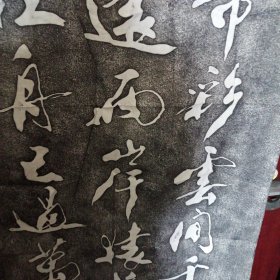 帝彩雲間千
還兩岸猿
江舟已過萬